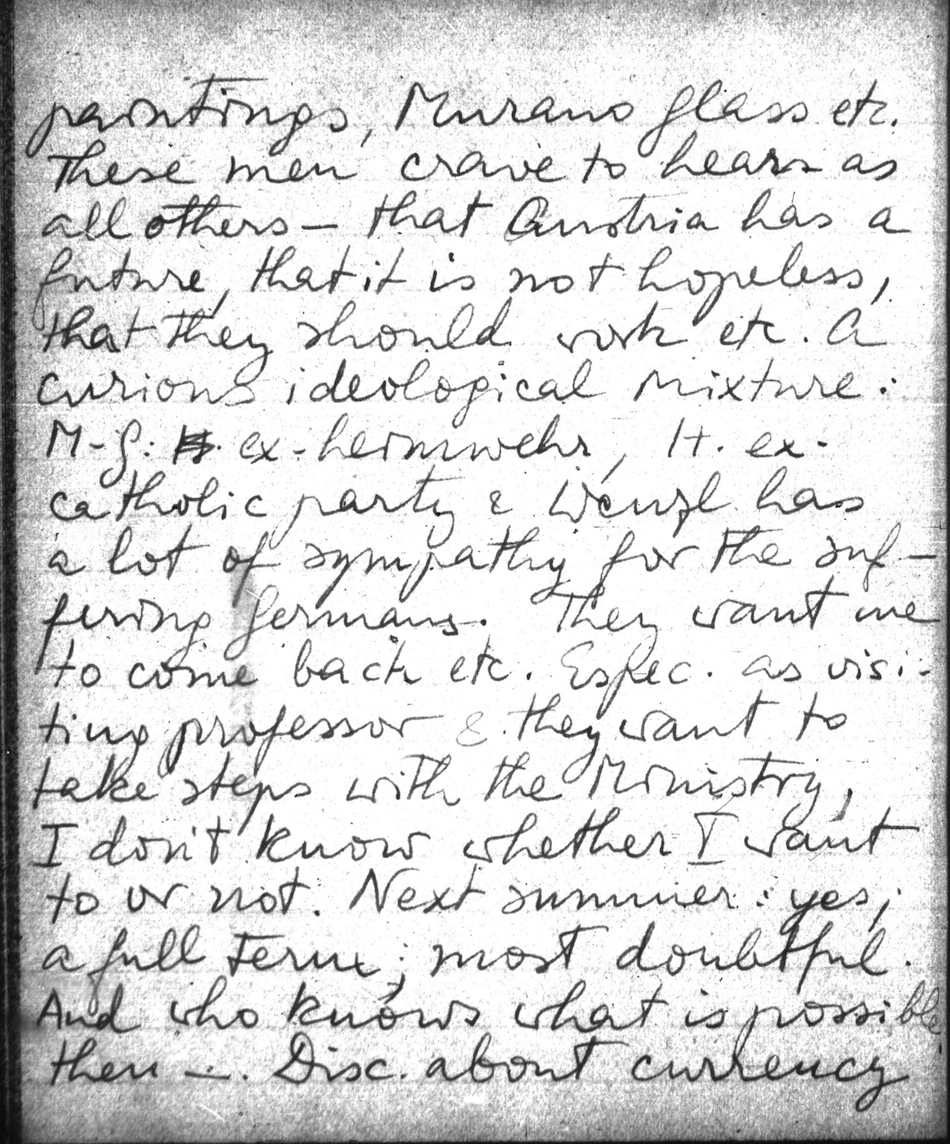 paintings, Murano glass etc.
These men crave to hear – as
all others – that Austria has a
future, that it is not hopeless,
that they should work etc. A
curious ideological mixture:
M-G: H. ex-heimwehr, H. ex-
catholic party & Wenzl has
a lot of sympathy for the suf-
fering Germans. They want me
to come back etc. Espec. as visi-
ting professor & they want to
take steps with the Ministry,
I don't know whether I want
to or not. Next summer: yes;
a full term; most doubtful.
And who knows what is possible
then –. Disc. about currency